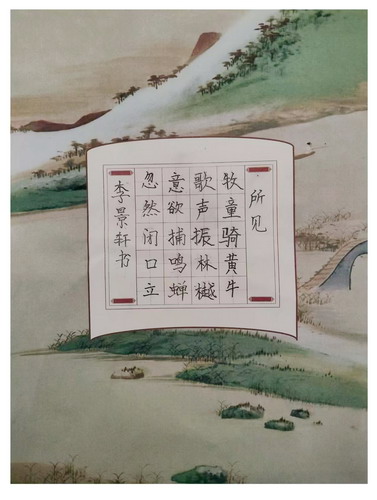 所见
牧童骑黄牛
歌声振林樾
意欲捕鸣蝉
忽然闭口立
李景轩书